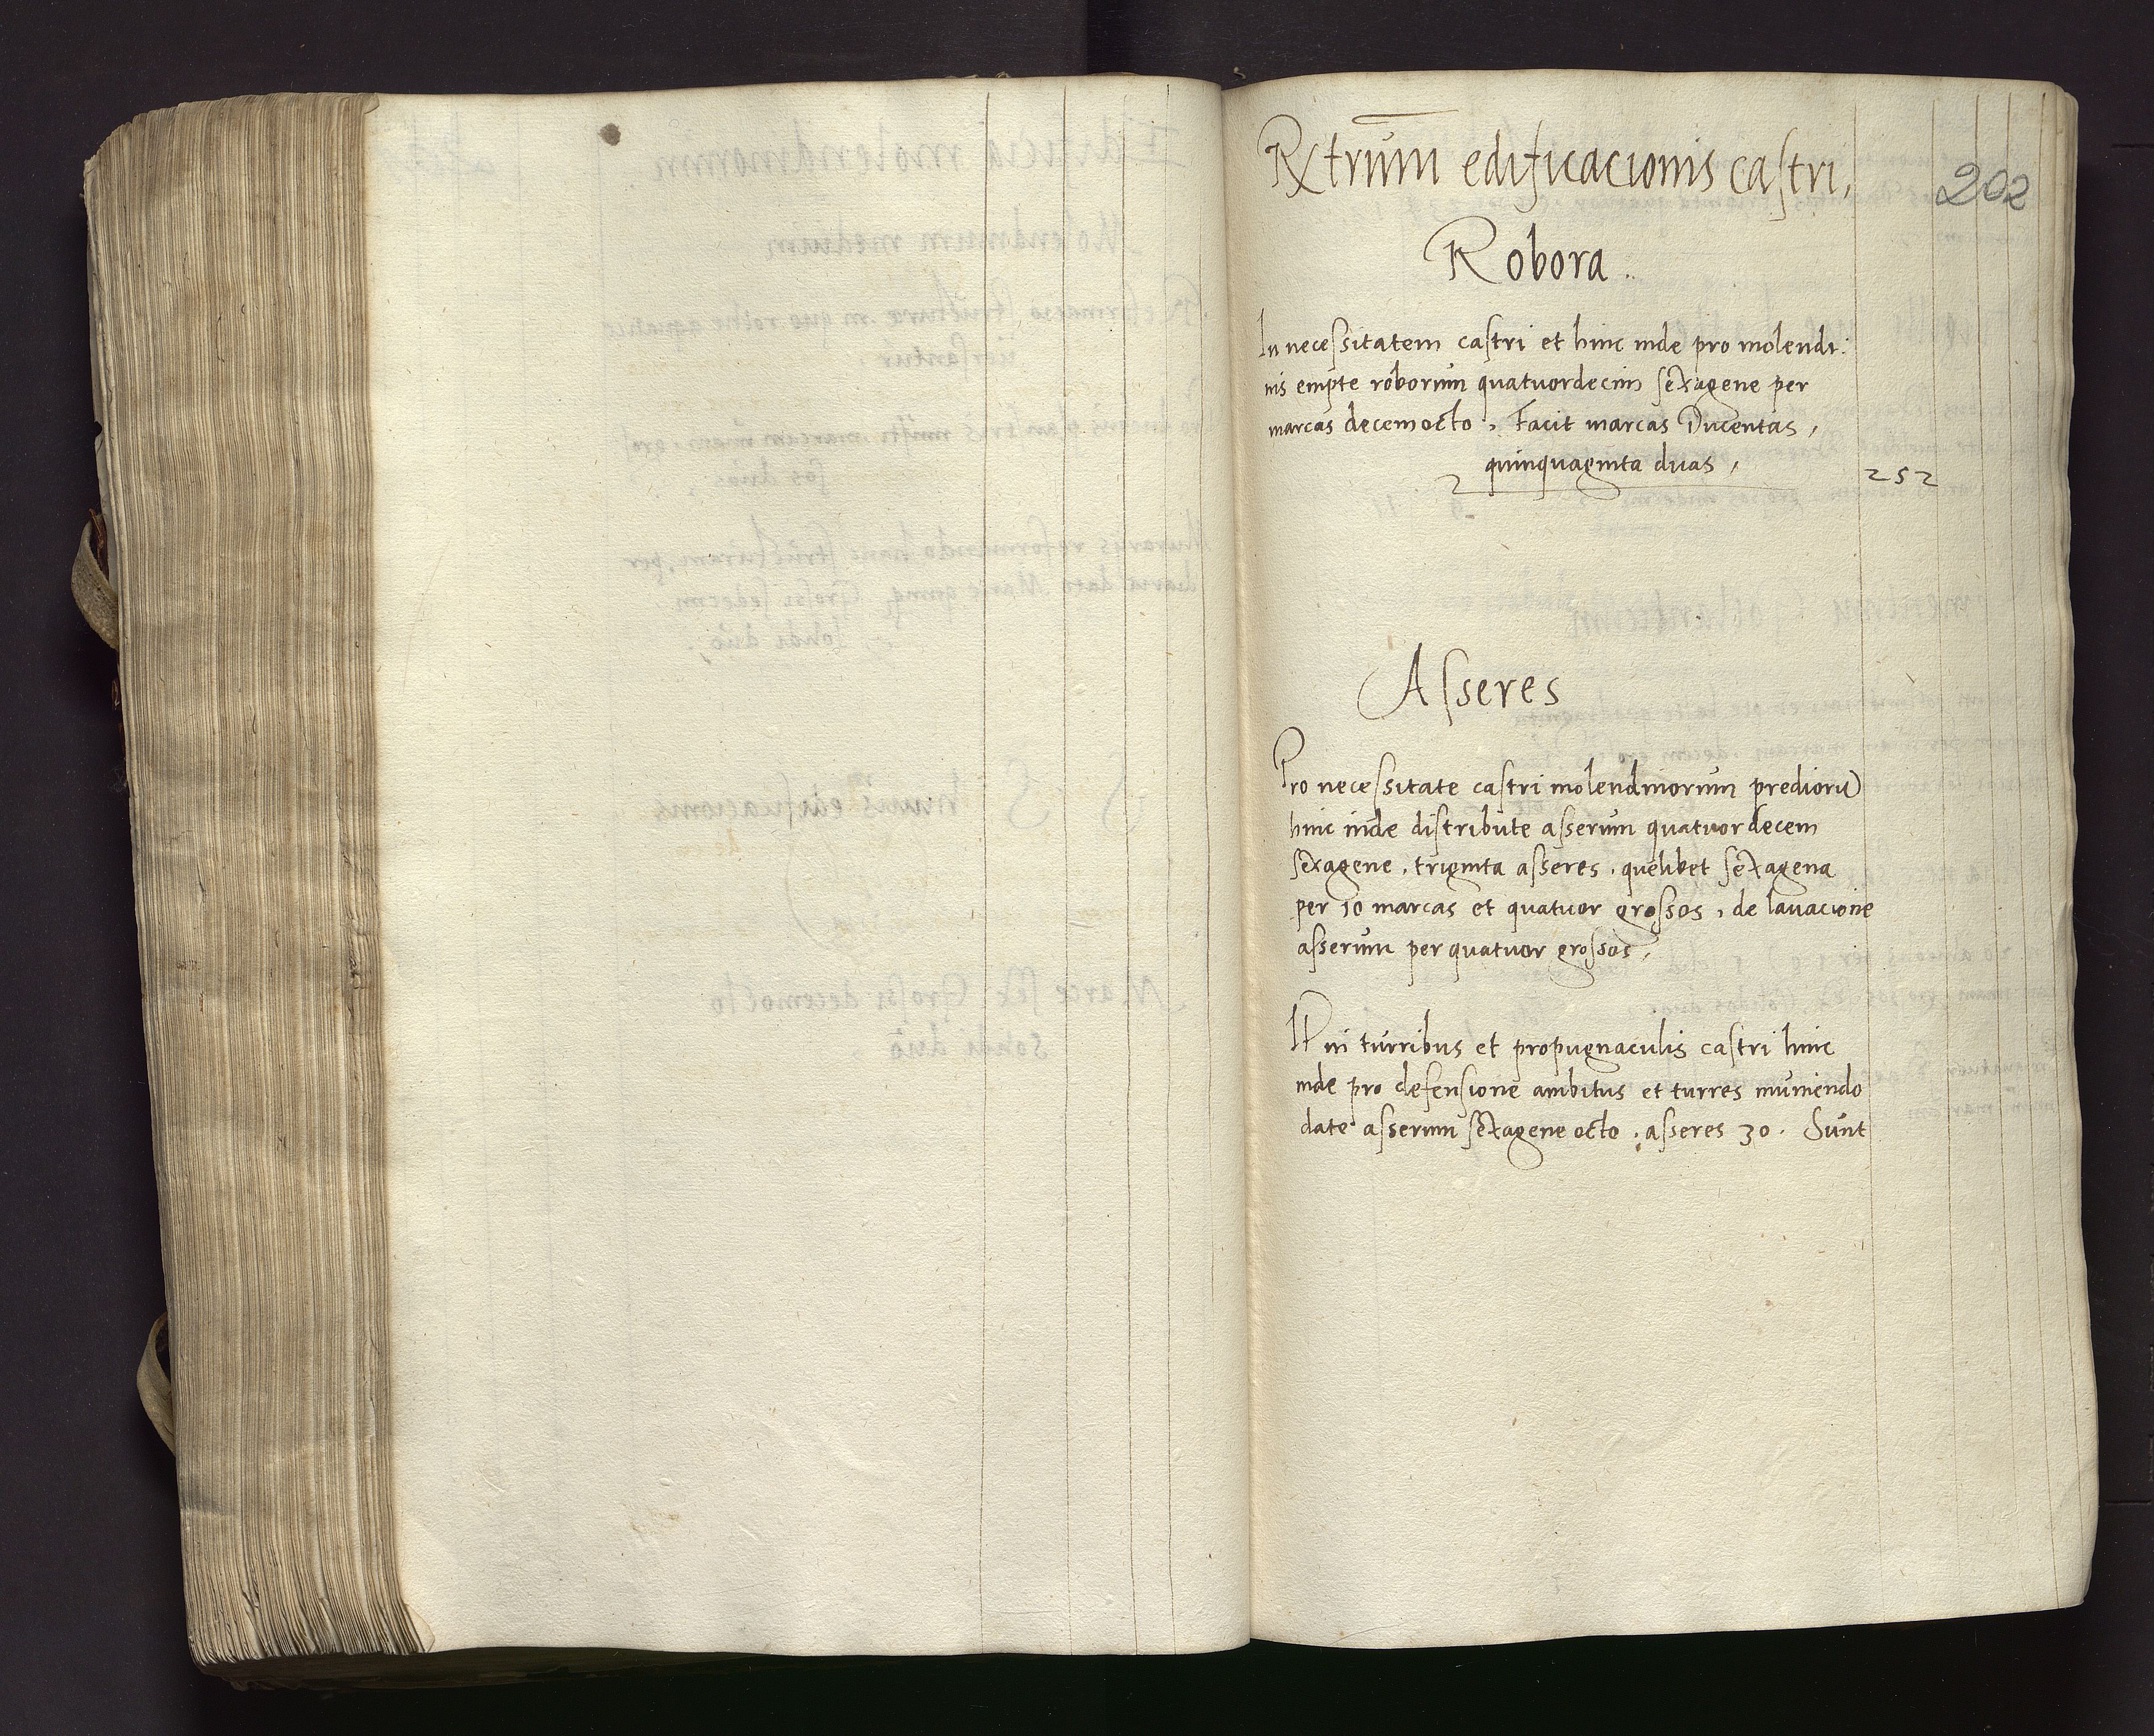 Rxtrum edificacionis castri,
202
Robora
In necessitatem castri et hinc inde pro molendi:
nis empte roborum quatuordecim sexagene per
marcas decemocto, Facit marcas Ducentas,
quinquaginta duas,
252
Asseres
Pro necessitate castri molendinorum prediorum
hinc inde distribute asserum quatuordecem
sexagene, triginta asseres, quelibet sexagena
per 10 marcas et quatuor grossos, de lauacione
asserum per quatuor grossos,
It in turribus et propugnaculis castri hinc
inde pro defensione ambitus et turres muniendo
date asserum sexagene octo, asseres 30. Sunt